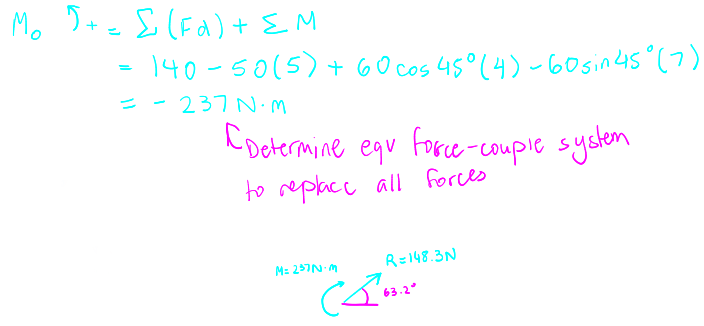 Mo ↺+ = Σ(Fd) + ΣM
= 140 - 50(5) + 60cos45°(4) - 60sin45°(7)
= - 237 N·m
Determine eqv force-couple system
to replace all forces
M=237N·m
R=148.3N
63.2°